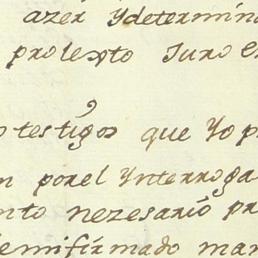 azer Ydetermina
protexto Juro e
o testigos que Yo p
n porel Ynterroga
nto nezesario pr
emifirmado man